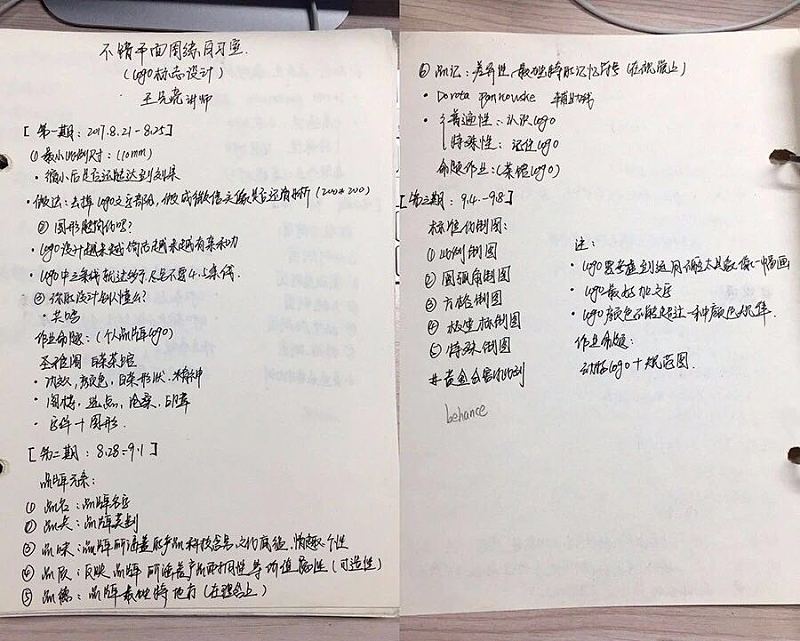 不错平面图练习室
(logo标志设计)
王兄亮讲师
[第一期:2017.8.21-8.25]
①最小比例尺寸:(10mm)
·缩小后是否还能达到效果
·做法:去掉logo文字部分,做成微信头像是否还有标价(200*200)
②图形能简化吗?
·logo设计越来越简洁越来越有亲和力
·logo中三条线就达到 尽量不要4.5条线.
③你能设计别人懂么?
·共鸣
作业命题:(个人品牌logo)
·功效,颜色,白菜形状,精神
·官件+图形.
[第二期:8.28-9.1]
品牌元素:
①品名:品牌名字
②品类:品牌类别
③品味:品牌所涵盖的产品 文化商值,情趣,个性
④品质:反映品牌所涵盖产品 价值属性(可选性)
⑤品德:品牌 (在理念上)
⑥品记:差异性,最独特的记忆符号(在视服上)
·Dorota Pankowska 辅助线
·普遍性:认识logo
特殊性:记住logo
命题作业:(茶馆logo)
[第三期:9.4-9.8]
标准化制图:
①比例制图
②圆弧角制图
③方格制图
④极坐标制图
⑤特殊制图
#黄金分割比例
behance
注:
·logo要考虑到运用 不能太具象像一幅画
·logo最好加文字
·logo颜色不能超过一种颜色
作业命题:
动物logo+规范图.